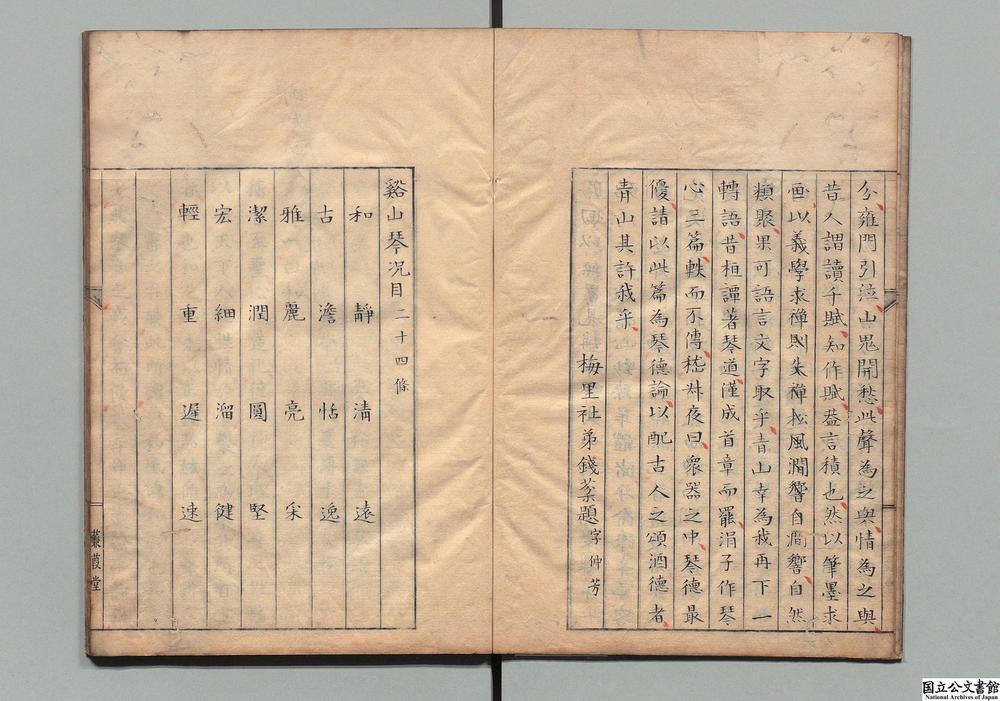 分雍門引泣山鬼開愁此聲為之與情為之與
昔人謂讀千賦知作賦葢言積也然以筆墨求
画以義學求禪則失禪松風澗響自澗響自然
類聚果可語言文字取乎青山幸為我再下一
轉語昔桓譚著琴道僅成首章而罷涓子作琴
心三篇軼而不傳嵇叔夜曰衆器之中琴德最
優請以此篇為琴德論以配古人之頌酒德者
青山其許我乎
梅里社弟錢棻題字仲芳
谿山琴况目二十四條
和 靜 清 遠
古 澹 恬 逸
雅 麗 亮 采
潔 潤 圓 堅
宏 細 溜 健
輕 重 遲 速
蒹葭堂
国立公文書館
National Archives of Japan